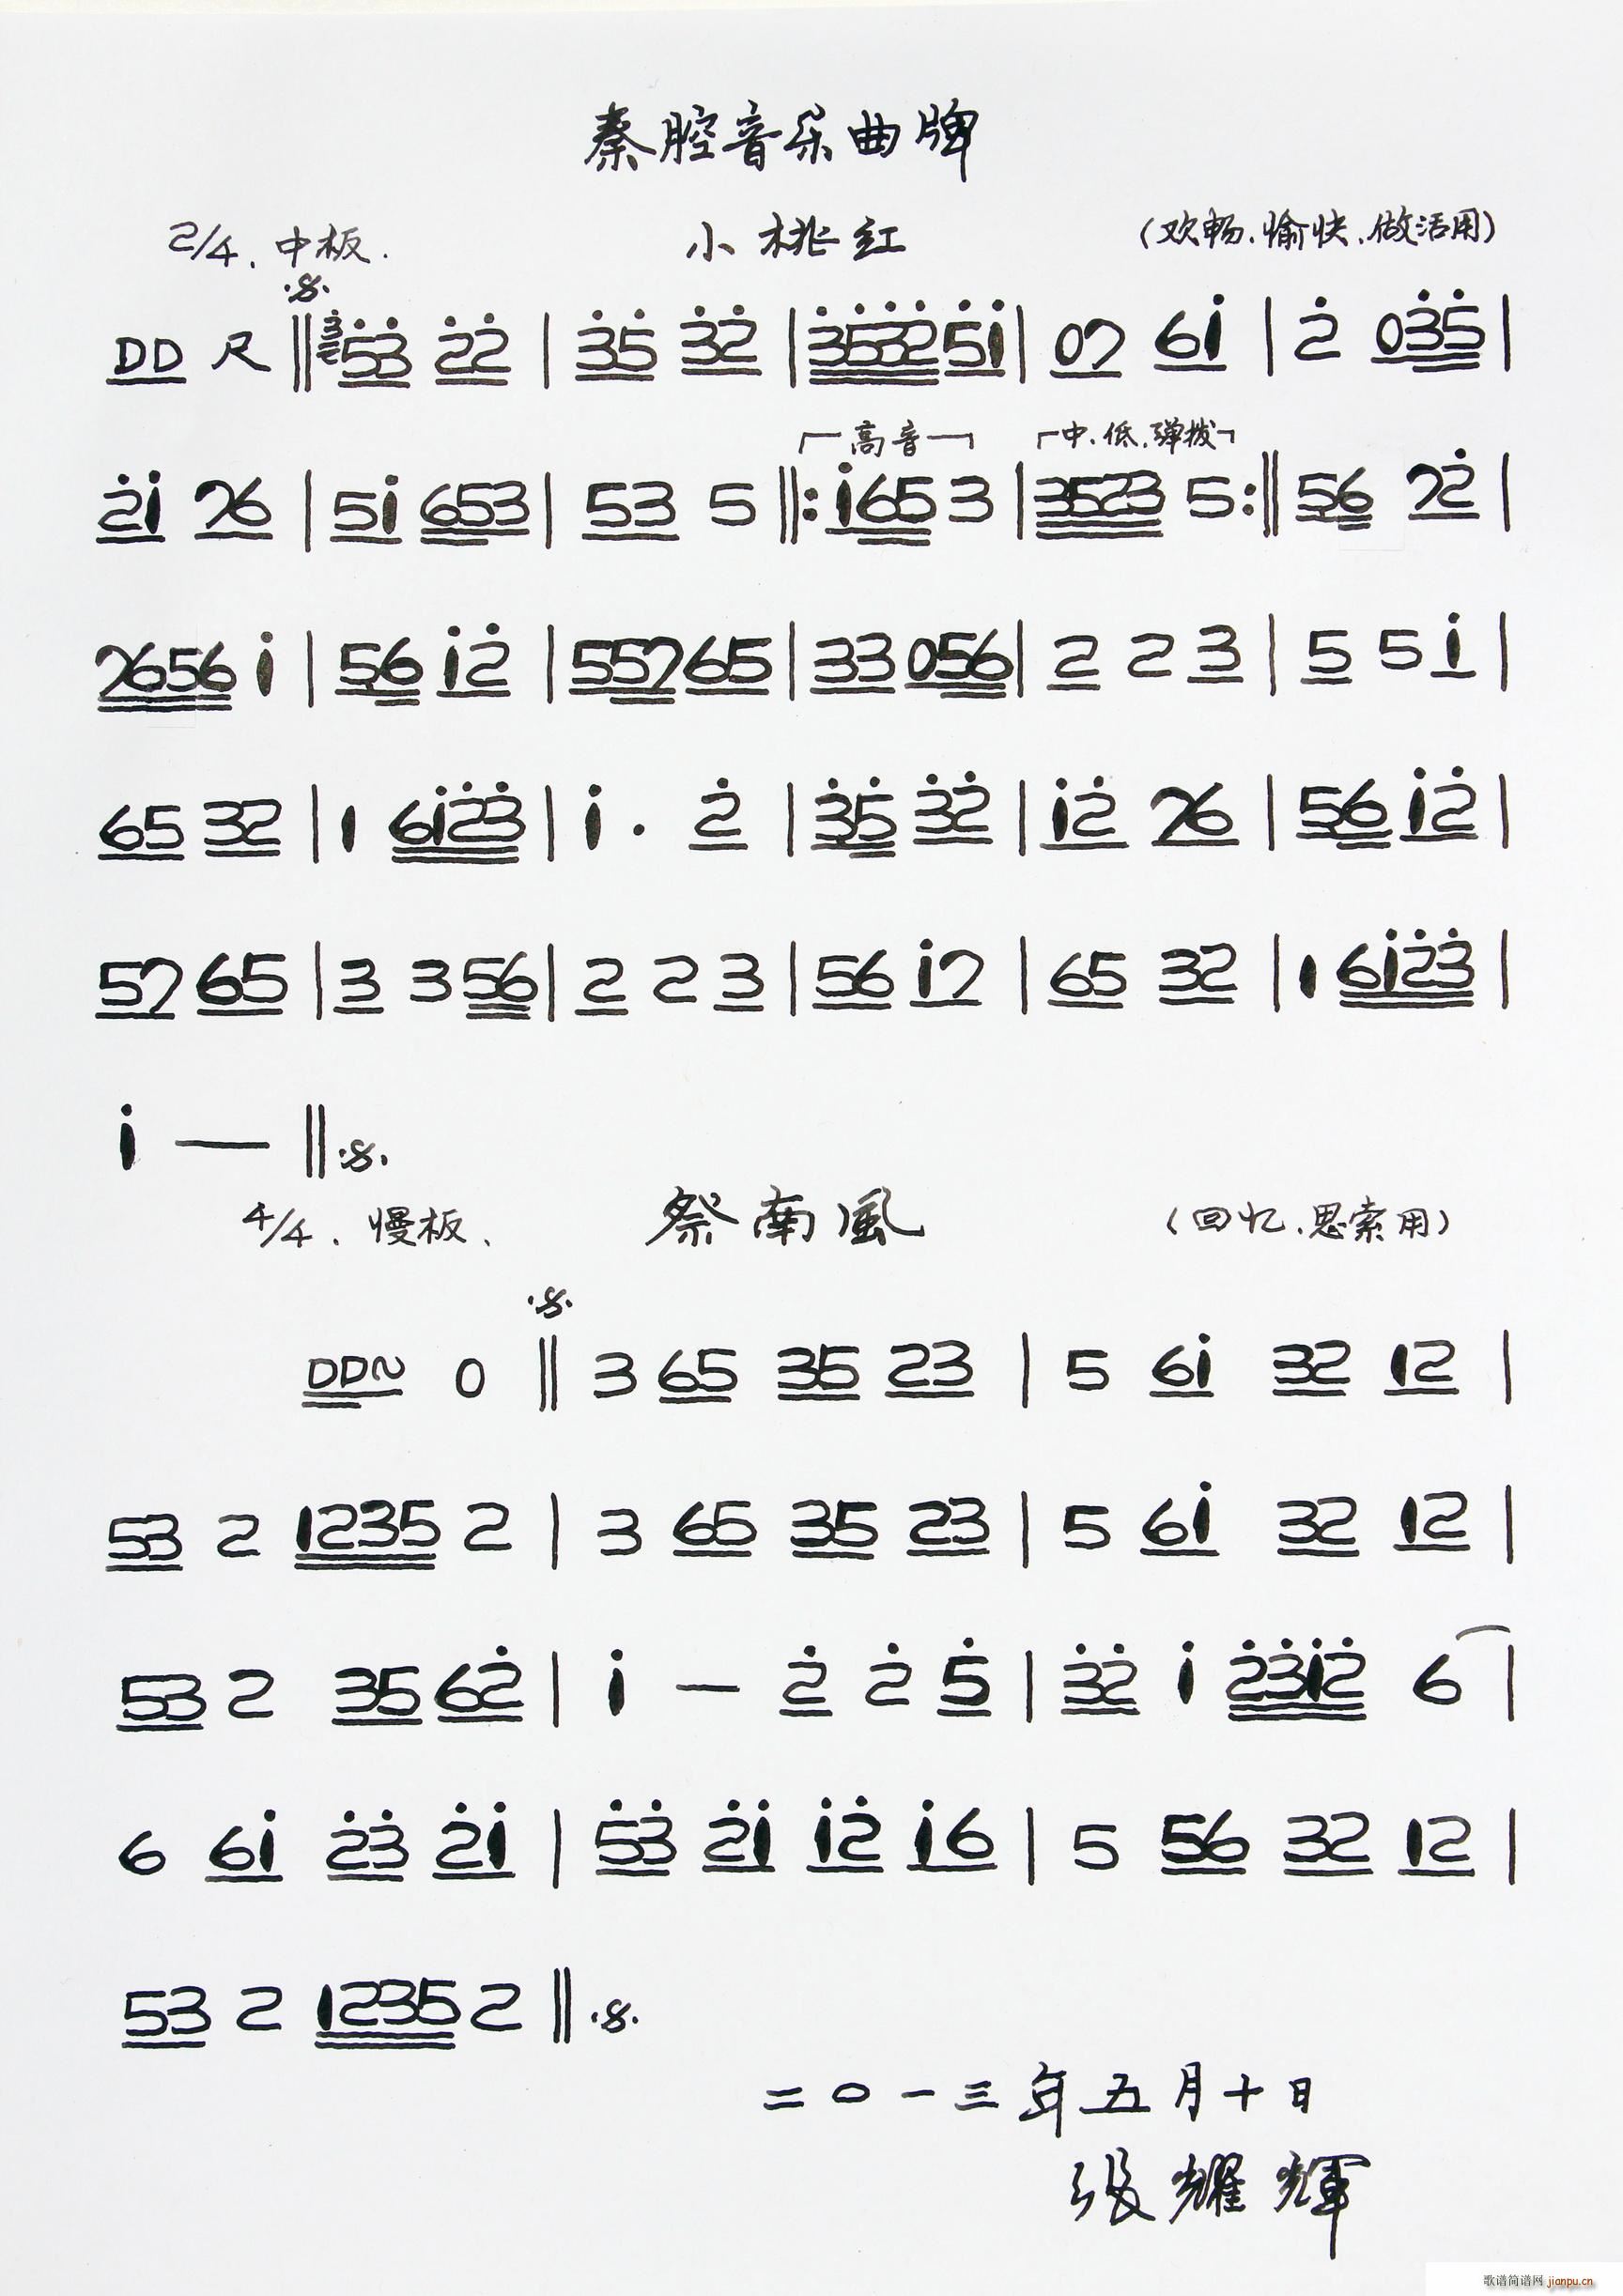 秦腔音乐曲牌
2/4.中板. 小桃红 (欢畅.愉快.做活用)
DD 尺 ‖ 53 22 | 35 32 | 353251 | 07 61 | 2 035 |
高音 中.低.弹拨
21 76 | 51 653 | 53 5 ‖: 165 3 | 3523 5 :‖ 56 72 |
7656 1 | 56 12 | 557 65 | 33 056 | 2 2 3 | 5 5 1 |
65 32 | 1 6123 | 1 · 2 | 35 32 | 12 76 | 56 12 |
57 65 | 3 3 56 | 2 2 3 | 56 17 | 65 32 | 1 6123 |
1 — ‖
4/4.慢板、 祭南風 (回忆.思索用)
DD~ 0 ‖ 3 65 35 23 | 5 61 32 12 |
53 2 1235 2 | 3 65 35 23 | 5 61 32 12 |
53 2 35 62 | 1 — 2 2 5 | 32 1 2312 6 |
6 61 23 21 | 53 21 12 16 | 5 56 32 12 |
53 2 1235 2 ‖
二〇一三年五月十日
張耀輝
歌谱简谱网 jianpu.cn